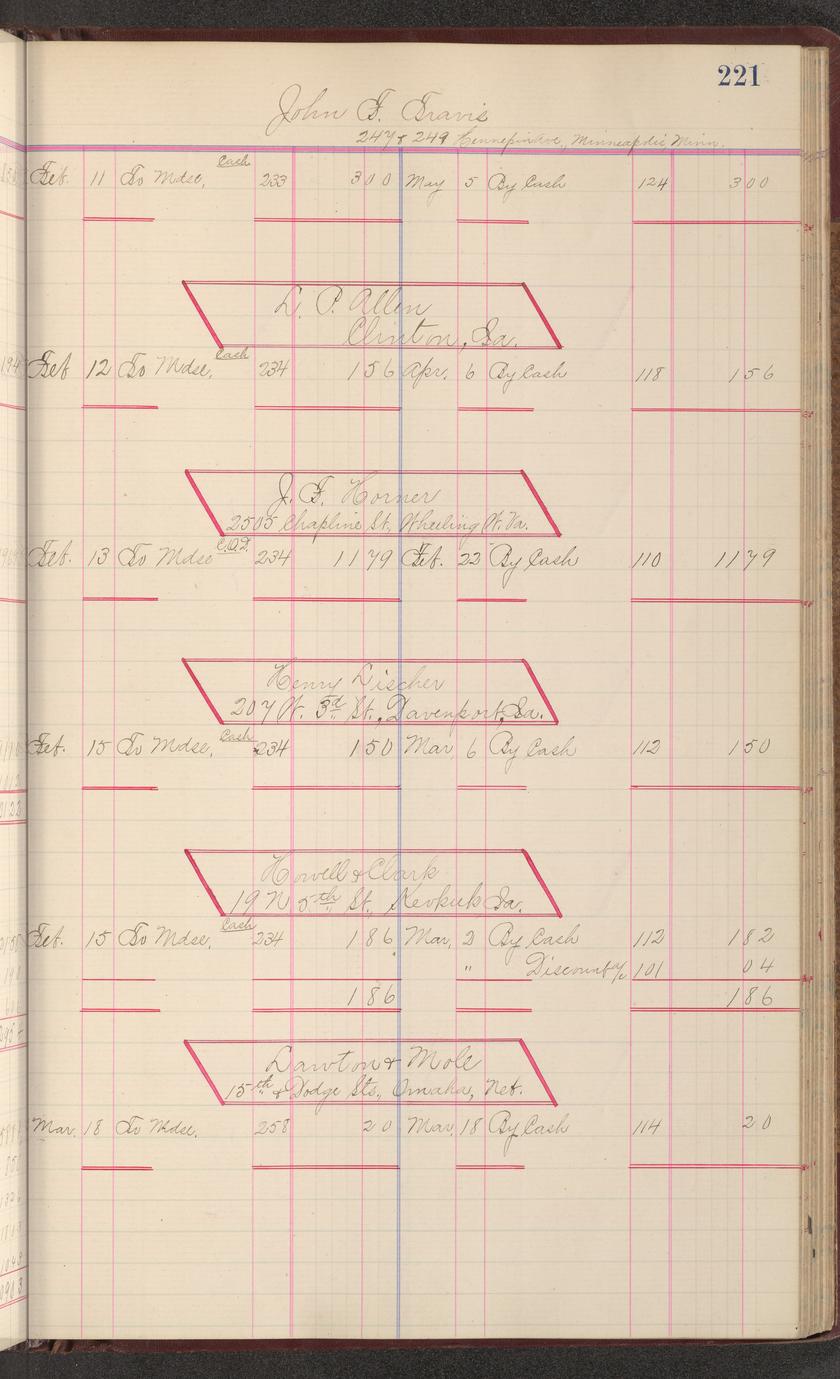 221
John F. Travis
247 & 249 Hennepin Ave., Minneapolis, Minn.
Feb. 11 To Mdse, Cash 233 3 00 May 5 By Cash 124 3 00
L. P. Allen
Clinton, Ia.
Feb 12 To Mdse, Cash 234 1 56 Apr. 6 By Cash 118 1 56
J. F. Horner
2505 Chapline St, Wheeling W. Va.
Feb. 13 To Mdse C.O.D. 234 11 79 Feb. 22 By Cash 110 11 79
Henry Lischer
207 W. 3rd St., Davenport, Ia.
Feb. 15 To Mdse, Cash 234 1 50 Mar. 6 By Cash 112 1 50
Howell & Clark
19 N 5th St., Keokuk Ia.
Feb. 15 To Mdse, Cash 234 1 86 Mar. 2 By Cash 112 1 82
" Discount a/c 101 04
1 86 1 86
Lawton & Mole
15th & Dodge Sts., Omaha, Neb.
Mar. 18 To Mdse. 258 20 Mar. 18 By Cash 114 20